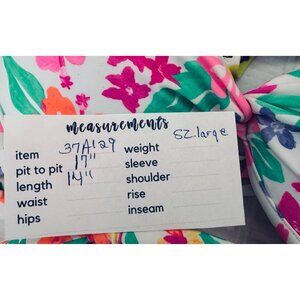 measurements
SZ. large
item 37A129 weight
pit to pit 17" sleeve
length 14" shoulder
waist rise
hips inseam